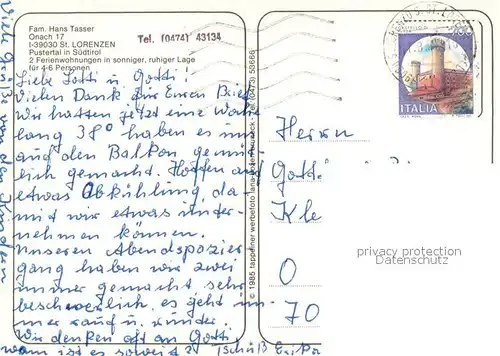 Fam. Hans Tasser
Onach 17
I-39030 St. LORENZEN
Pustertal in Südtirol
2 Ferienwohnungen in sonniger, ruhiger Lage
für 4-6 Personen
Tel. (0474) 43134
Liebe Lotti u Gotti!
Vielen Dank für Euren Brief.
Wir hatten jetzt eine Woche
lang 38° haben es uns
auf den Balkon gemüt
lich gemacht. Hoffen auf
etwas Abkühlung, da-
mit wir etwas unter-
nehmen können.
Unseren Abendspazier
gang haben wir zwei
immer gemacht, sehr
beschwerlich, es geht im-
mer rauf u. runder.
Wir denken oft an Gotti
wann ist es soweit? Tschüß Erika
Viele Grüße von den Kindern
© 1985 tappeiner werbefoto lana
ITALIA
Herrn
Gott
Kle
0
70
privacy protection
Datenschutz